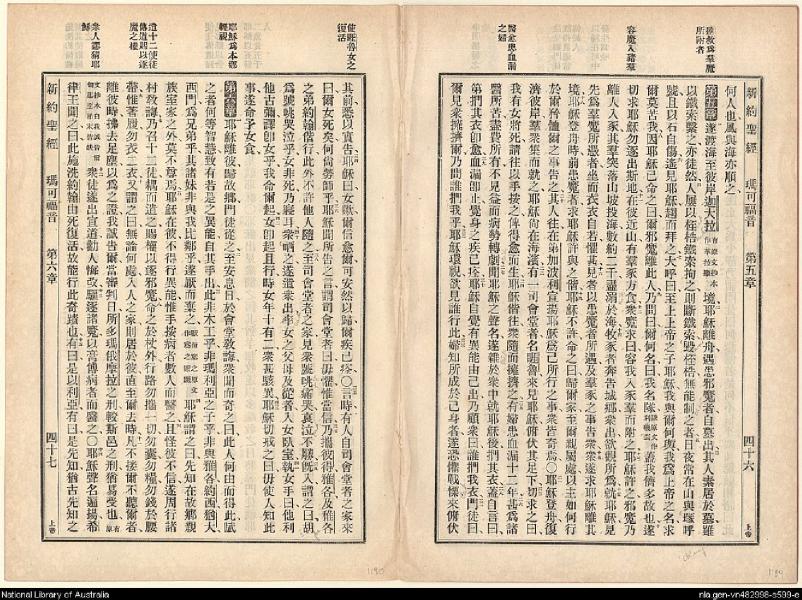 新約聖經 瑪可福音 第五章 四十六 上帝
拯救為羣魔所附者
容魔入豬羣
醫愈患血漏之婦
何人也風與海亦順之
第五章 遂渡海至彼岸
境耶穌離舟遇患邪魔者自墓出其人素居於墓雖
以鐵索繫之亦徒然人屢以桎梏鐵索拘之則斷鐵索毀桎梏無能制之者日夜常在山與塚呼
號且以石自傷遙見耶穌趨而拜之大呼曰至上上帝之子耶穌我與爾何與我為上帝之名求
爾莫苦我因耶穌已命之曰邪魔離此人乃問曰爾何名曰我名隊
蓋我儕多故也遂
切求耶穌勿逐出斯地在彼近山有羣豕方食眾魔求曰容我入豕羣而附之耶穌許之邪魔乃
離人入豕其羣突落山坡投海數約二千盡溺於海牧豕者奔告城鄉眾出欲觀所為就耶穌見
先為羣魔所憑者坐而衣衣自若懼甚見者以患魔者所遇及羣豕之事告眾眾遂求耶穌離其
境耶穌登舟時前患魔者求耶穌許與之偕耶穌不許命之曰歸爾家至爾親屬處以主如何行
於爾矜恤爾之事告之其人往在第加波利宣揚耶穌為己所行之事眾皆奇焉○耶穌登舟復
濟彼岸羣眾集而就之耶穌尚在海濱有一司會堂者名睚魯來見耶穌俯伏其足下切求之曰
我有女將死請往以手按之俾得愈而生耶穌偕往眾隨而擁擠之有婦患血漏十二年甚為諸
醫所苦盡費所有不見益而病勢轉劇聞耶穌之聲名遂雜於眾中就耶穌後捫其衣蓋自言曰
第捫其衣即愈血漏即止覺身之疾已痊耶穌自覺有異能由己出乃顧眾曰誰捫我衣門徒曰
爾見眾擁擠爾乃問誰捫我乎耶穌環視欲見誰行此婦知所成於己身者遂恐懼戰慄來俯伏
使睚魯女之復活
耶穌為本鄉輕視
遣十二使徒傳道賜以逐魔之權
眾人忖猜耶穌
其前悉以實告耶穌曰女歟爾信愈爾可安然以歸爾疾已痊○言時有人自司會堂者之家來
曰爾女死矣何尚勞師乎耶穌聞所告之言謂司會堂者曰毋懼惟當信乃攜彼得雅各及雅各
之弟約翰偕行此外不許他人隨之至司會堂者之家見眾號咷痛哭哀泣不勝旣入謂之曰胡
為號咷哭泣乎女非死乃寢耳眾哂之遂遣眾出率女之父母及從者入女臥室執女手曰他利
他古彌譯即女乎我命爾起女即起且行時女年十有二眾甚駭異耶穌切戒之曰毋使人知此
事遂命予女食
第六章 耶穌離彼歸故鄉門徒從之至安息日於會堂敎誨眾聞而奇之曰此人何由而得此賦
之者何等智慧致有若是之異能自其手出此非木工乎非瑪利亞之子乎非與雅各約西猶大
西門為兄弟乎其諸妹非與我比鄰乎遂厭而棄之
耶穌謂之曰先知在故鄉親
族室家之外莫不尊焉耶穌在彼不得行異能惟手按病者數人而醫之且怪彼不信遂周行諸
村敎誨乃召十二徒耦而遣之賜權以逐邪魔命之於杖外行路勿攜一切勿囊勿糧勿錢於腰
帶惟著履勿衣二衣又謂之曰無論何處入人之家則居於彼直至爾去時凡不接爾不聽爾者
離彼時拂去足塵以為之證我誠告爾當審判日所多瑪俄摩拉之刑較斯邑之刑猶易受也
眾徒遂出宣道勸人悔改驅逐諸魔以膏傅病者而醫之○耶穌聲名遍揚希
律王聞之曰此施洗約翰由死復活故能行此奇蹟也有曰是以利亞有曰是先知猶古先知之
新約聖經 瑪可福音 第六章 四十七 上帝
National Library of Australia
nla.gen-vn482998-s599-e